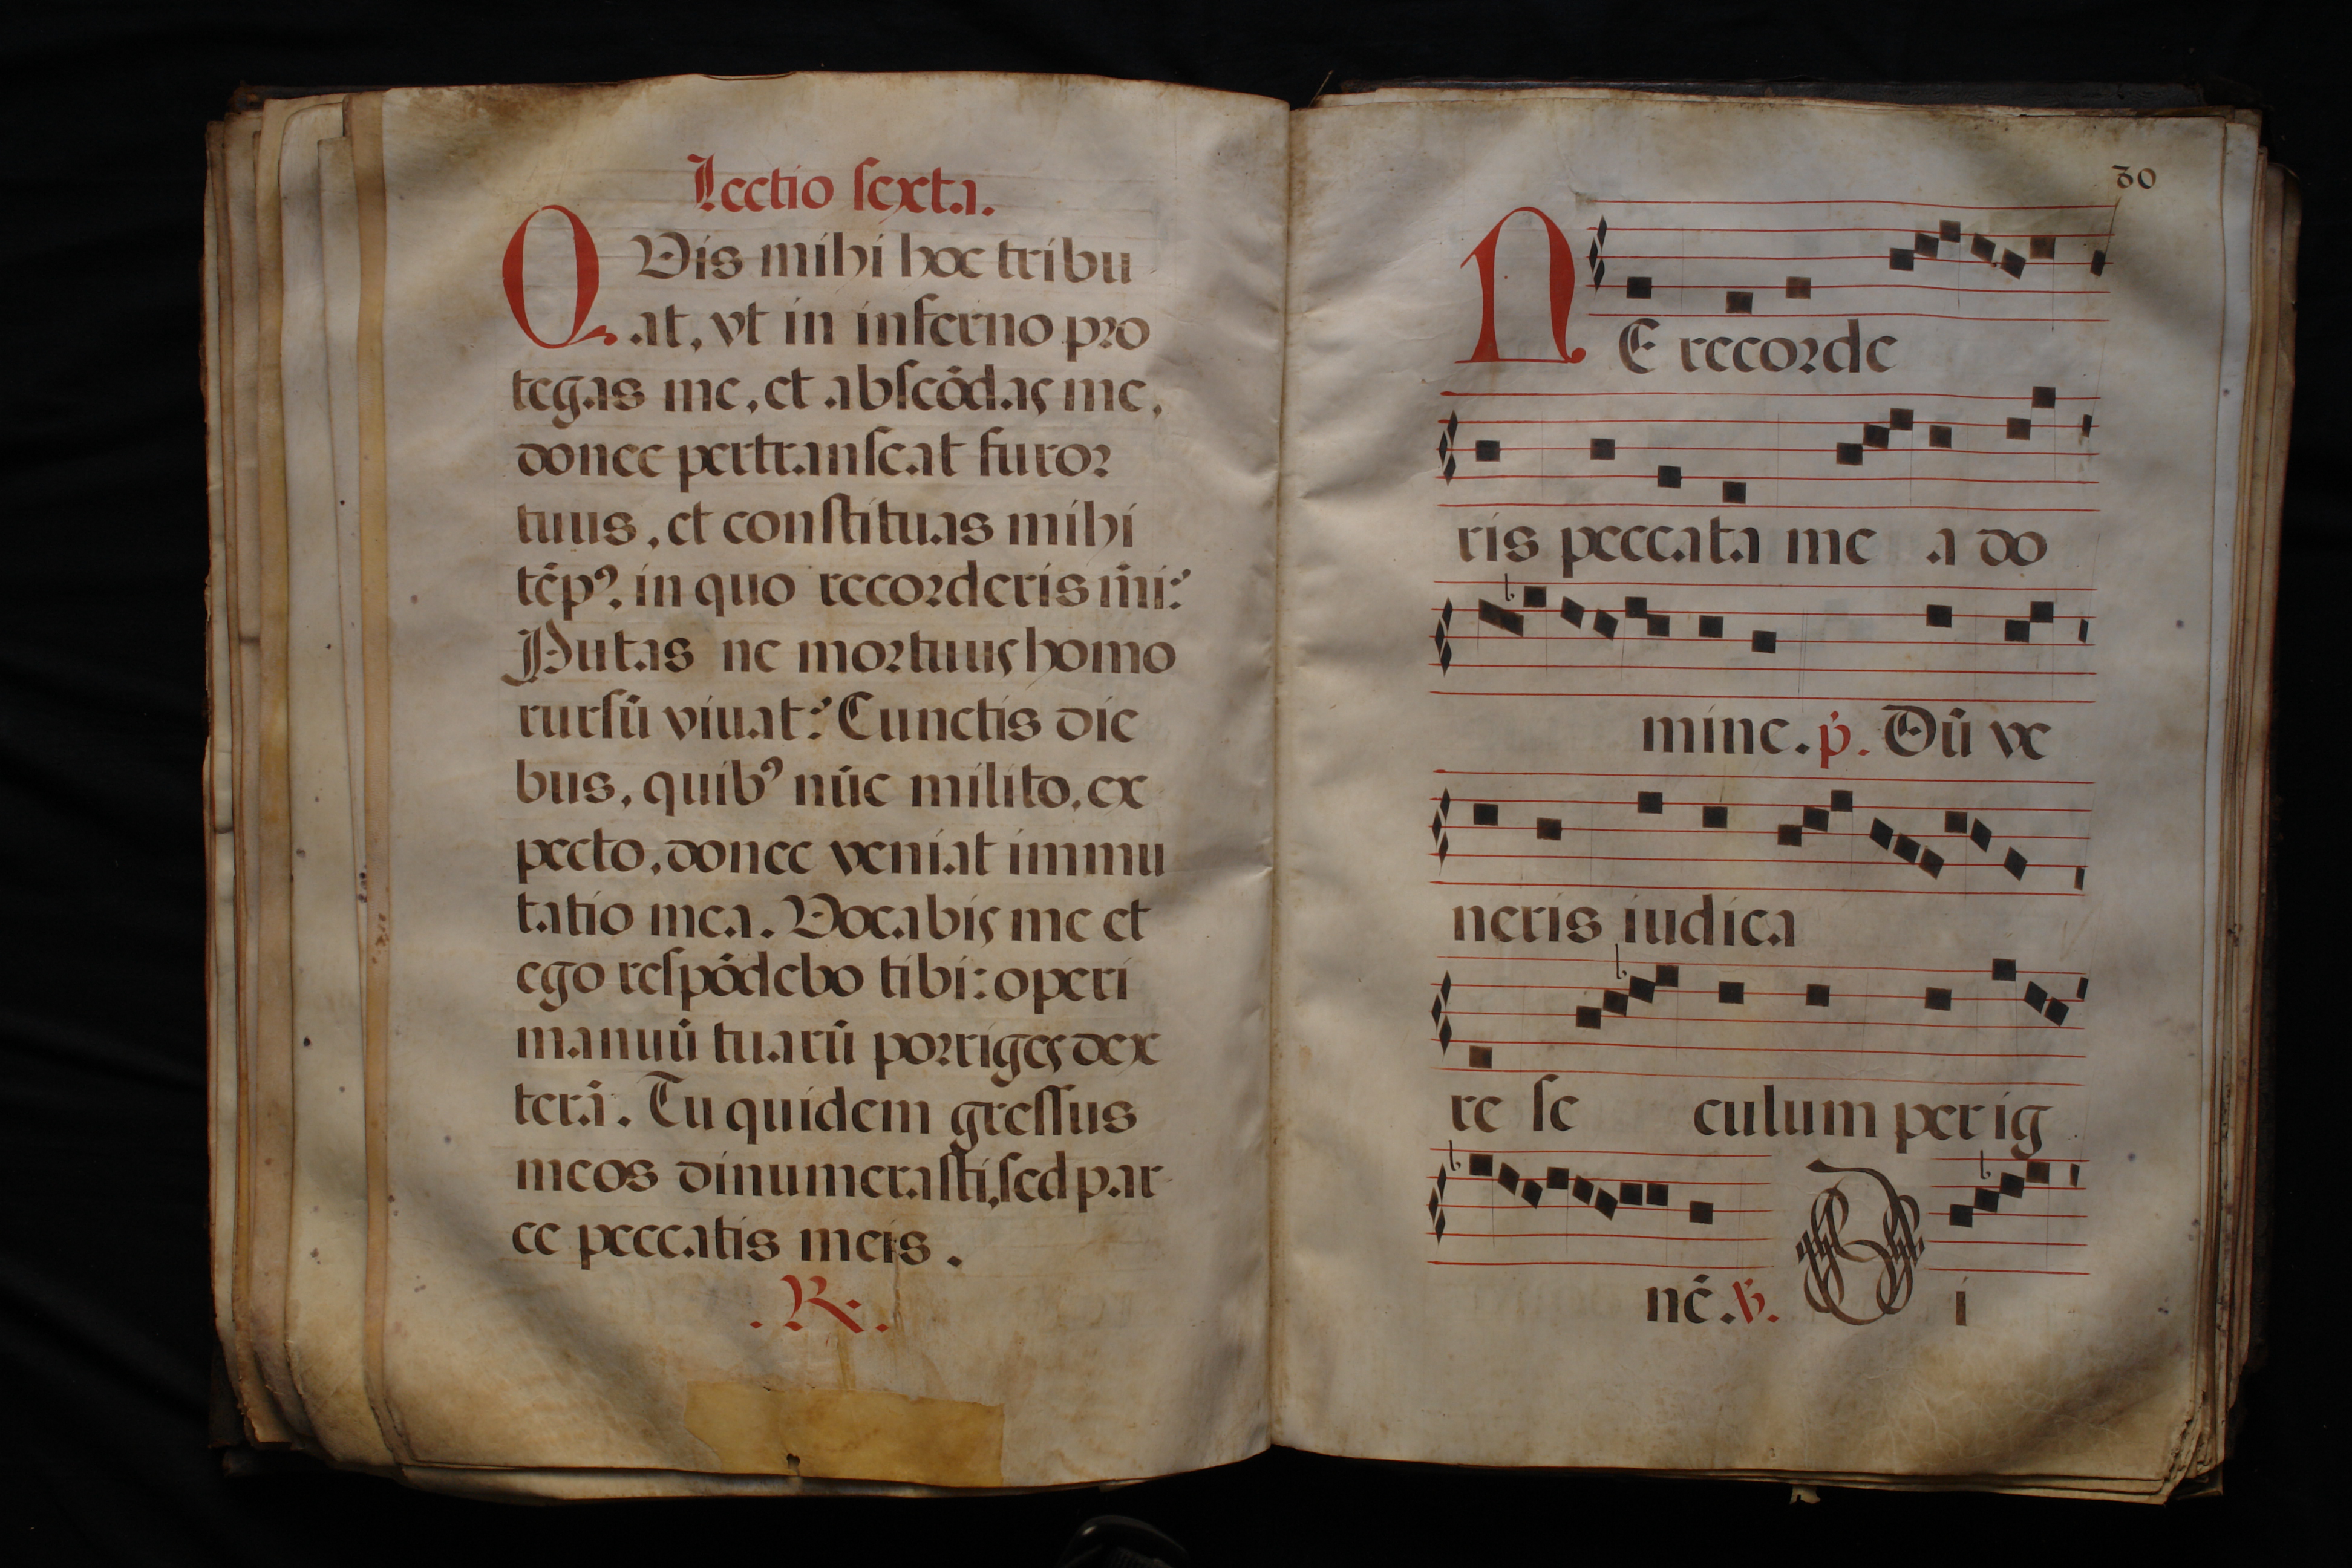 Lectio sexta.
QVis mihi hoc tribu
at, vt in inferno pro
tegas me, et abscōdas me,
donec pertranseat furor
tuus, et constituas mihi
tēpꝰ, in quo recorderis m̄i:
Putas ne mortuus homo
rursū viuat? Cunctis die
bus, quibꝰ nūc milito, ex
pecto, donec veniat immu
tatio mea. Vocabis me et
ego respōdebo tibi: operi
manuū tuarū porriges dex
terā. Tu quidem gressus
meos dinumerasti, sed par
ce peccatis meis.
.R.
30
NE recorde
ris peccata me a do
mine. p̄. Dū ve
neris iudica
re se culum per ig
nē. ℣. D i